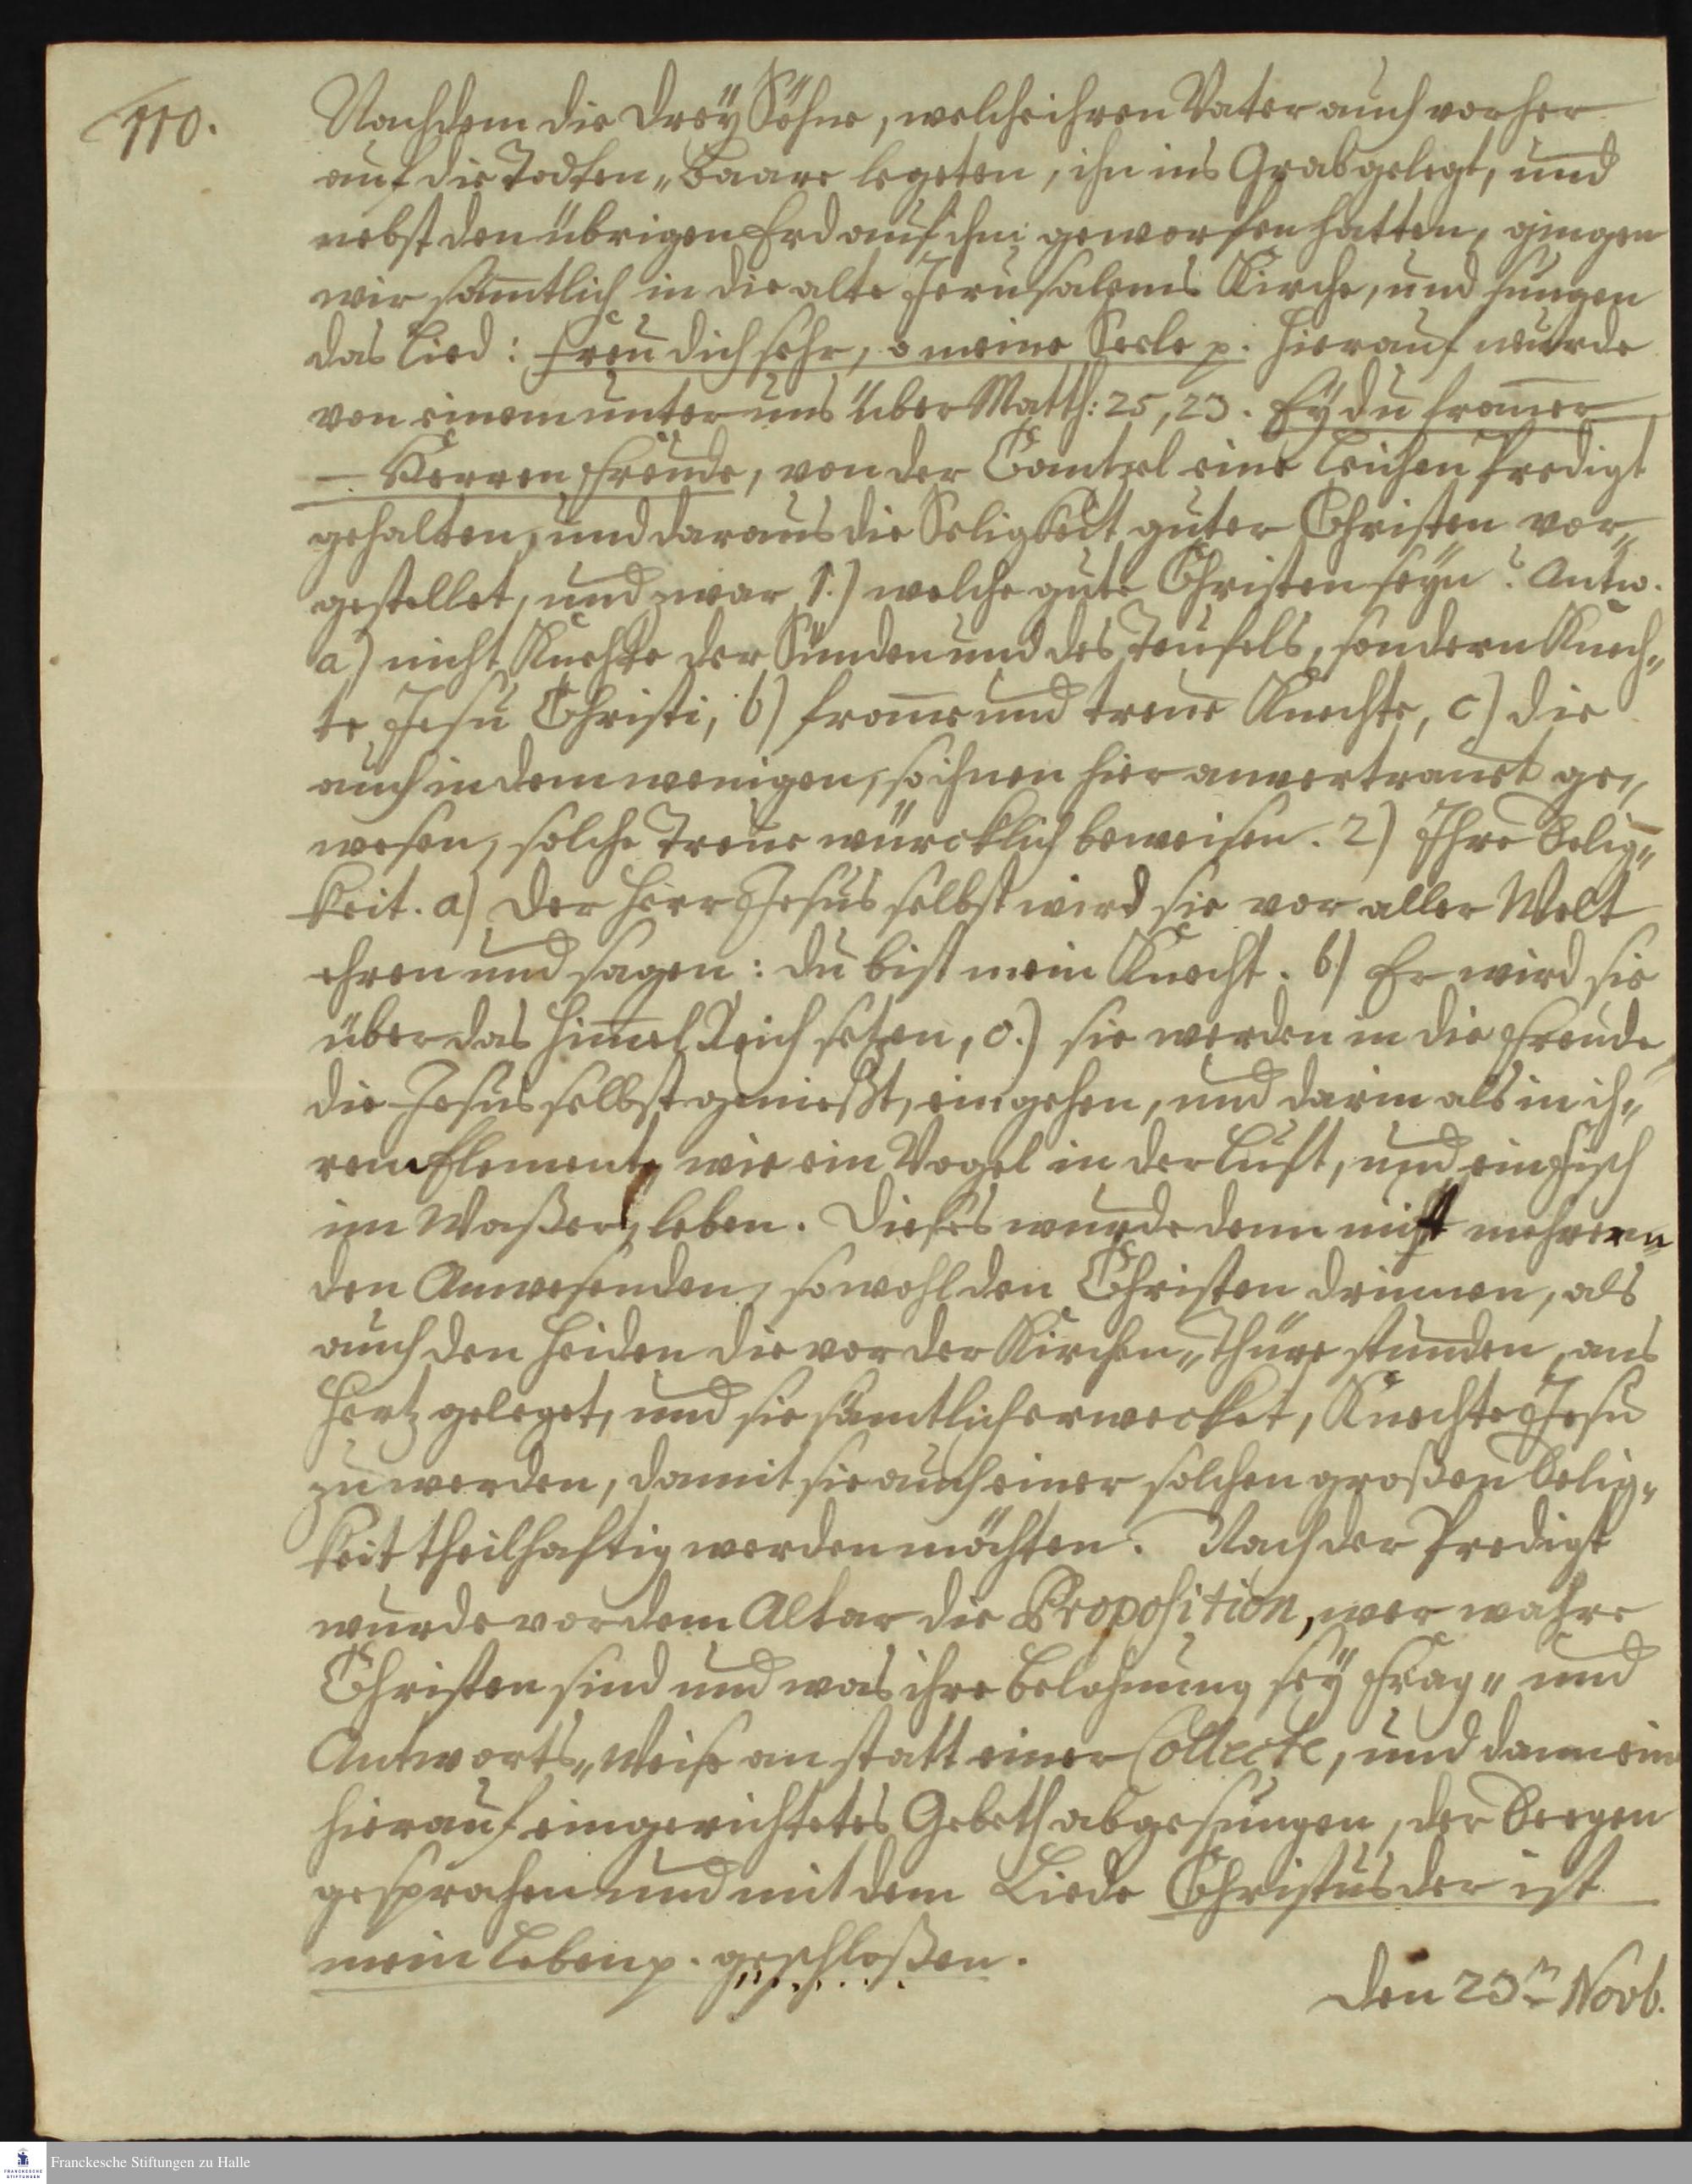 110.
Nachdem die drey Söhne, welche ihren Vater auch vorher
auf die Todten„Baare legeten, ihn ins Grab gelegt, und
nebst den übrigen Erd auf ihn geworfen hatten, gingen
wir sam̅tlich in die alte Jerusalems Kirche, und sungen
das Lied: Freu dich sehr, o meine Seele p. Hierauf wurde
von einem unter uns über Matth: 25, 23. Ey du from̅er
—. Herren Freude, von der Cantzel eine Leichen Predigt
gehalten, und daraus die Seligkeit guter Christen vor„
gestellet, und zwar 1.) welche gute Christen seyn? Antw.
a) nicht Knechte der Sünden und des Teufels, sondern Knech„
te Jesu Christi, b) from̅e und treue Knechte, c) die
auch in dem wenigen, so ihnen hier anvertrauet ge„
wesen, solche Treue würcklich beweisen. 2) Ihre Selig„
keit. a) Der Herr Jesus selbst wird sie vor aller Welt
ehren und sagen: du bist mein Knecht. b) Er wird sie
über das Him̅el Reich setzen, c.) sie werden in die Freude,
die Jesus selbst genießt, eingehen, und darin als in ih„
rem Element, wie ein Vogel in der Luft, und ein Fisch
im Waßer, leben. Dieses wurde denn mit mehrern
den Anwesenden, sowohl den Christen drinnen, als
auch den Heiden die vor der Kirchen„Thüre stunden, ans
Hertz geleget, und sie sämtlich erwecket, Knechte Jesu
zu werden, damit sie auch einer solchen großen Selig„
keit theilhaftig werden möchten. Nach der Predigt
wurde vor dem Altar die Proposition, wer wahre
Christen sind und was ihre Belohnung sey Frag„ und
Antworts„Weise an statt einer Collecte, und dann ein
hierauf eingerichtetes Gebeth abgesungen, der Seegen
gesprochen und mit dem Liede Christus der ist
mein Leben p. geschloßen.
Den 23ten Novb.
Franckesche Stiftungen zu Halle
FRANCKESCHE STIFTUNGEN